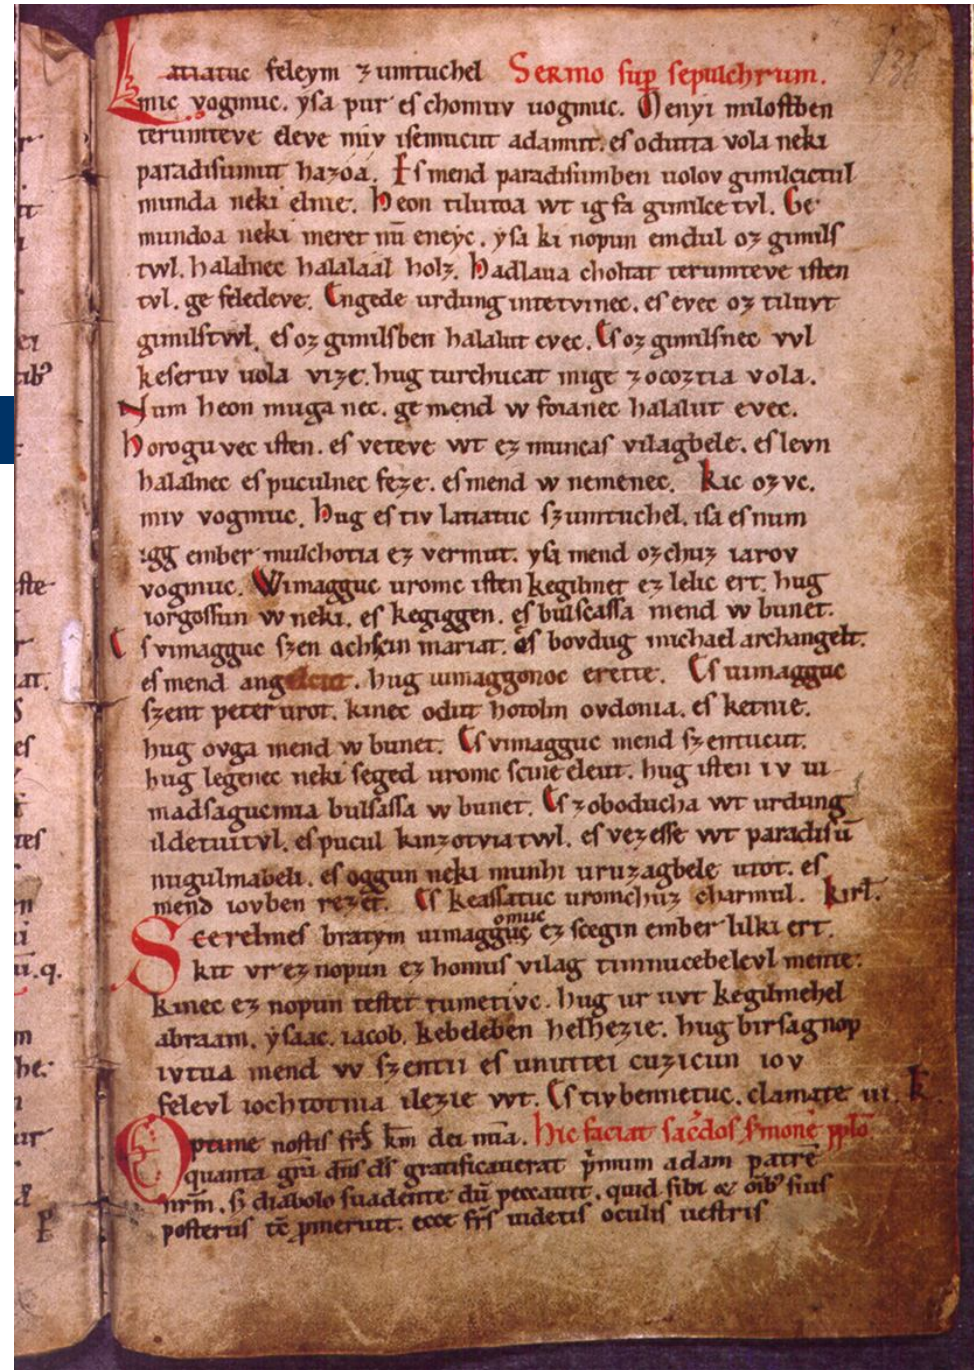 Latiatuc feleym zumtuchel Sermo sup sepulchrum. 136
mic vogmuc. ẏsa pur es chomuv uogmuc. Menyi milostben
terumteve eleve miv isemucut adamut. es odutta vola neki
paradisumut hazóá. Es mend paradisumben uolov gimilcictul
munda neki elnie. Heon tilutoa wt igfa gimilce tvl. Ge
mundoa neki meret nū eneyc. ẏsa ki nopun emdul oz gimils
twl. halalnec halalaal holz. Hadlaua choltat terumteve isten
tvl. ge feledeve. Engede urdung intetvinec. es evec oz tiluvt
gimilstwl. es oz gimilsben halalut evec. Es oz gimilsnec vvl
keseruv uola vize. hug turchucat mige zocoztia vola.
Num heon muga nec. ge mend w foianec halalut evec.
Horogu vec isten. es veteve wt ez muncas vilagbele. es levn
halalnec es puculnec feze. es mend w nemenec. Kic ozvc.
miv vogmuc. Hug es tiv latiatuc szumtuchel. isa es num
igg ember mulchotia ez vermut. ysa mend ozchuz iarov
vogmuc. Wimagguc uromc isten kegilmet ez lelic ert. hug
iorgossun w neki. es kegiggen. es bulscassa mend w bunet.
Es vimagguc szen achscin mariat. es bovdug michael archangelt.
es mend angelcut. hug uimaggonoc erette. Es uimagguc
szent peter urot. kinec odut hotolm ovdonia. es ketnie.
hug ovga mend w bunet. Es vimagguc mend szentucut.
hug legenec neki seged uromc scine eleut. hug isten iv ui
madsagucmia bulsassa w bunet. Es zoboducha wt urdung
ildetuitvl. es pucul kinzotviatwl. es vezesse wt paradisū
nugulmabeli. es oggun neki munhi uruzagbele utot. es
mend iovben rezet. Es keassatuc uromchuz charmul. Kirł.
Scerelmes bratym uimagguc omuc ez scegin ember lilki ert.
kit vr ez nopun ez homus vilag timnucebelevl mente.
kinec ez nopun testet tumetivc. hug ur uvt kegilmehel
abraam. ẏsaac. iacob. kebeleben helhezie. hug birsagnop
ivtua mend vv szentii es unuttei cuzicun iov
felevl iochtotnia ilezie vvt. Es tivbennetuc. clamate iii. K.
Optime nostis frs̄ km̄ dei mīa. Hic faciat sac̄dos s̄monē pp̄lo
quanta grā dn̄s ds̄ gratificauerat p̄mum adam patrē
nrm̄. S; diabolo suadente dū peccauit. quid sibi & oib᷒ suis
posteriis tc̄ pmeruit. ecce frs̄ uidetis oculis uestris